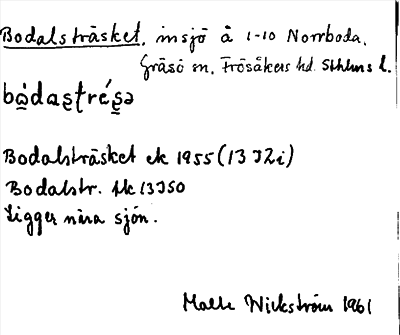 Bodalsträsket, insjö å 1-10 Norrboda,
Gräsö sn, Frösåkers hd. Sthlms l.
Bodalsträsket ek 1955 (13 I2i)
Bodalstr. tk 13 I SO
Ligger nära sjön.
Malte Wickström 1961